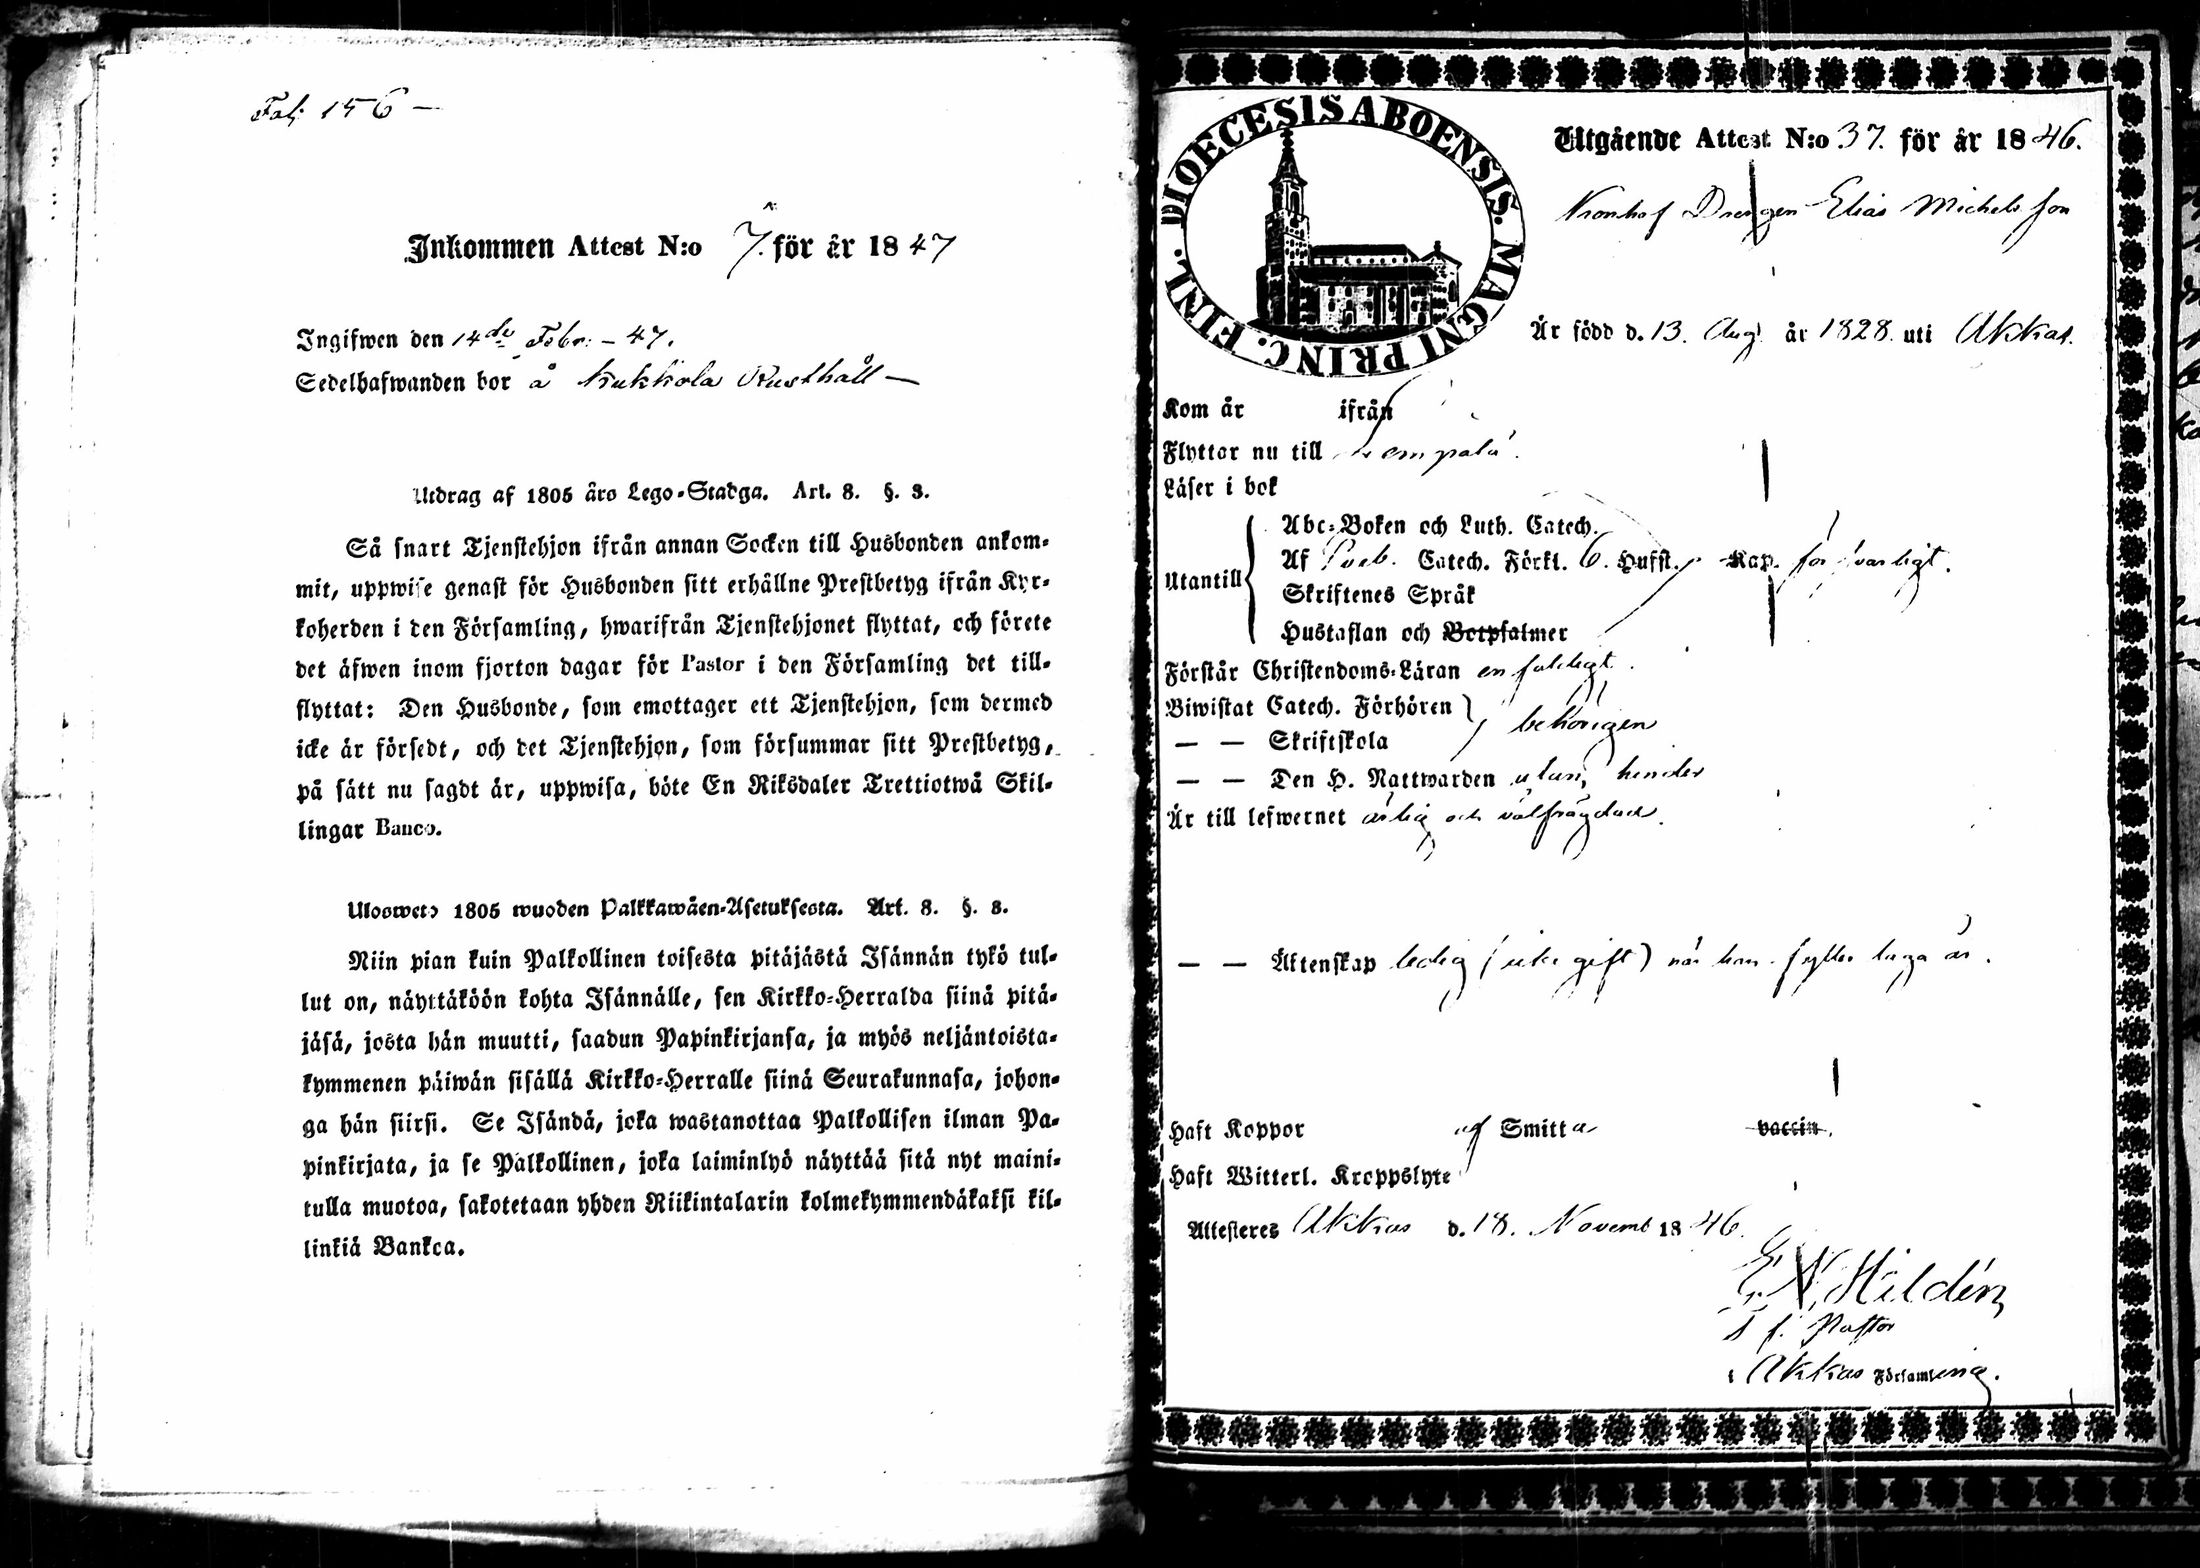 Fol. 156 —
Inkommen Attest N:o 7. för år 1847
Ingifwen den 14de Febr. – 47.
Sedelhafwanden bor å Kukkola Rusthåll —
Utdrag af 1805 års Lego-Stadga. Art. 8. §. 3.
Så snart Tjenstehjon ifrån annan Socken till Husbonden ankom-
mit, uppwise genast för Husbonden sitt erhållne Prestbetyg ifrån Kyr-
koherden i den Församling, hwarifrån Tjenstehjonet flyttat, och förete
det äfwen inom fjorton dagar för Pastor i den Församling det till-
flyttat: Den Husbonde, som emottager ett Tjenstehjon, som dermed
icke är försedt, och det Tjenstehjon, som försummar sitt Prestbetyg,
på sätt nu sagdt är, uppwisa, böte En Riksdaler Trettiotwå Skil-
lingar Banco.
Ulosweto 1805 wuoden Palkkawäen-Asetuksesta. Art. 8. §. 3.
Niin pian kuin Palkollinen toisesta pitäjästä Isännän tykö tul-
lut on, näyttäköön kohta Isännälle, sen Kirkko-Herralda siinä pitä-
jäsä, josta hän muutti, saadun Papinkirjansa, ja myös neljäntoista-
kymmenen päiwän sisällä Kirkko-Herralle siinä Seurakunnasa, johon-
ga hän siirsi. Se Isändä, joka wastanottaa Palkollisen ilman Pa-
pinkirjata, ja se Palkollinen, joka laiminlyö näyttää sitä nyt maini-
tulla muotoa, sakotetaan yhden Riikintalarin kolmekymmendäkaksi kil-
linkiä Bankca.
DIOECESIS ABOENSIS. MAGNI PRINC. FINL.
Utgående Attest N:o 37. för år 1846.
Drengen Elias Michelsson
Är född d. 13. Aug. år 1828. uti Akkas.
Kom år ifrån
Flyttar nu till Lempälä.
Läser i bok
Utantill
Abc-Boken och Luth. Catech.
Af Sveb. Catech. Förkl. 6. Hufst. Kap. försvarligt.
Skriftenes Språk
Hustaflan och Botpsalmer
Förstår Christendoms-Läran enfaldigt.
Biwistat Catech. Förhören
— — Skriftskola behörigen
— — Den H. Nattwarden utan hinder
Är till lefwernet ärlig och välfrägdad.
— — Äktenskap ledig (icke gift) när han fyller laga år.
Haft Koppor af Smitta vaccin.
Haft Witterl. Kroppslyte
Attesteres Akkas d. 18. Novemb 1846.
E N Hildén
T. f. Pastor
i Akkas Församling.